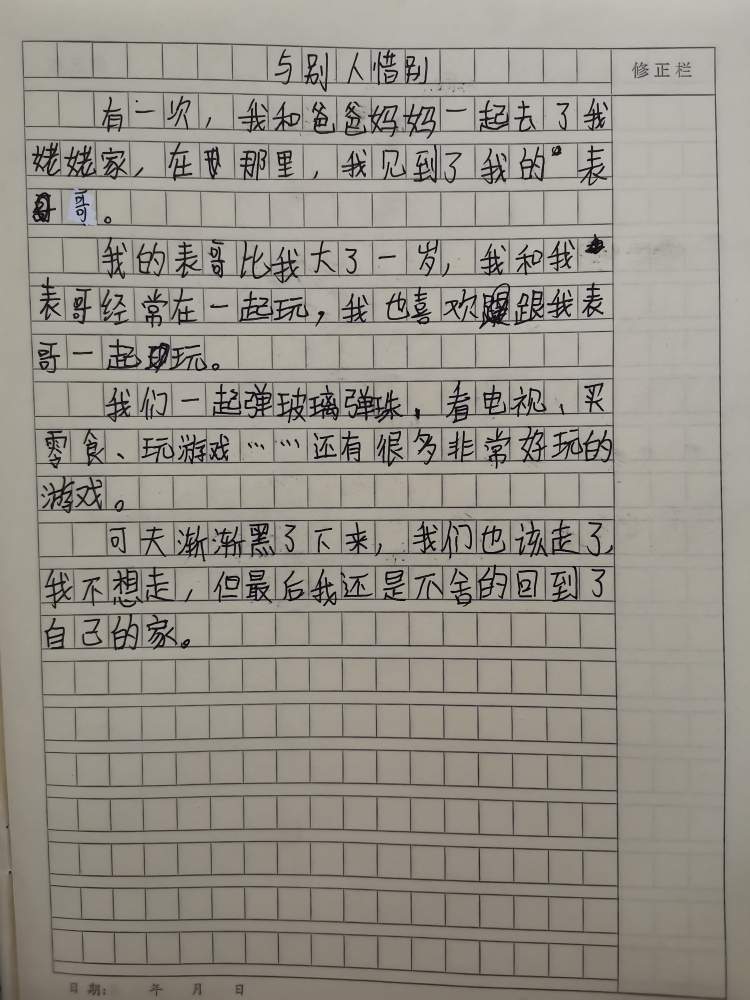 与别人惜别
修正栏
有一次，我和爸爸妈妈一起去了我
姥姥家，在那里，我见到了我的表
哥。
我的表哥比我大了一岁，我和我
表哥经常在一起玩，我也喜欢跟我表
哥一起玩。
我们一起弹玻璃弹珠、看电视、买
零食、玩游戏……还有很多非常好玩的
游戏。
可天渐渐黑了下来，我们也该走了，
我不想走，但最后我还是不舍的回到了
自己的家。
日期： 年 月 日